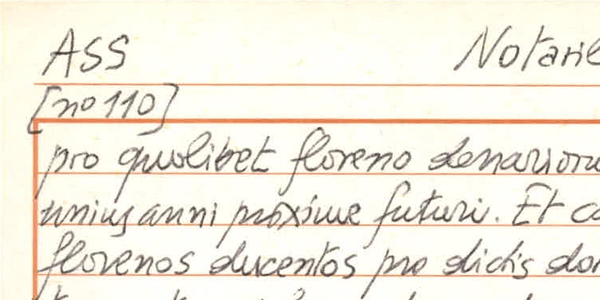 ASS Notarile
[no 110]
pro quolibet floreno denariorum
unius anni proxime futuri. Et
florenos ducentos pro dictis